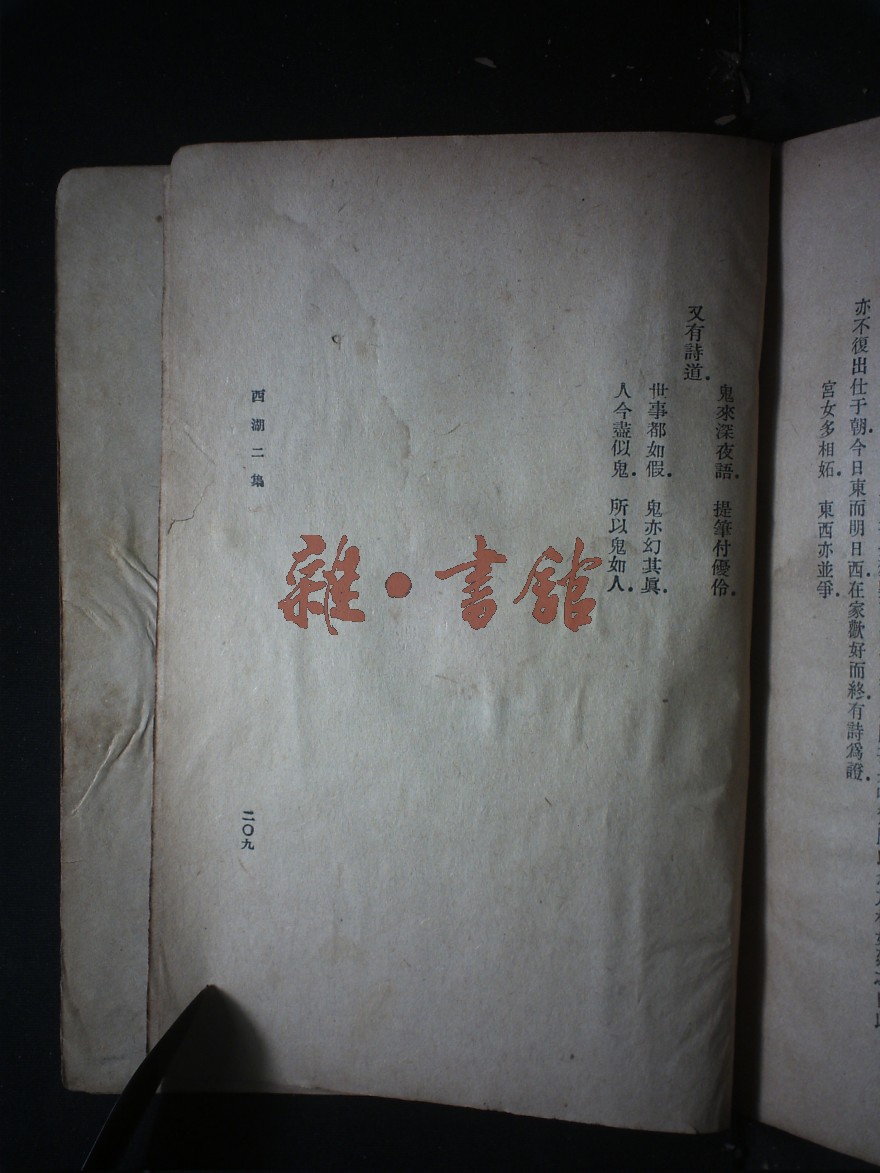 亦不復出仕于朝.今日東而明日西.在家歡好而終.有詩爲證.
宮女多相妬.　東西亦並爭.
鬼來深夜語.　提筆付優伶.
又有詩道.
世事都如假.　鬼亦幻其眞.
人今盡似鬼.　所以鬼如人.
西湖二集
二〇九
雜·書館